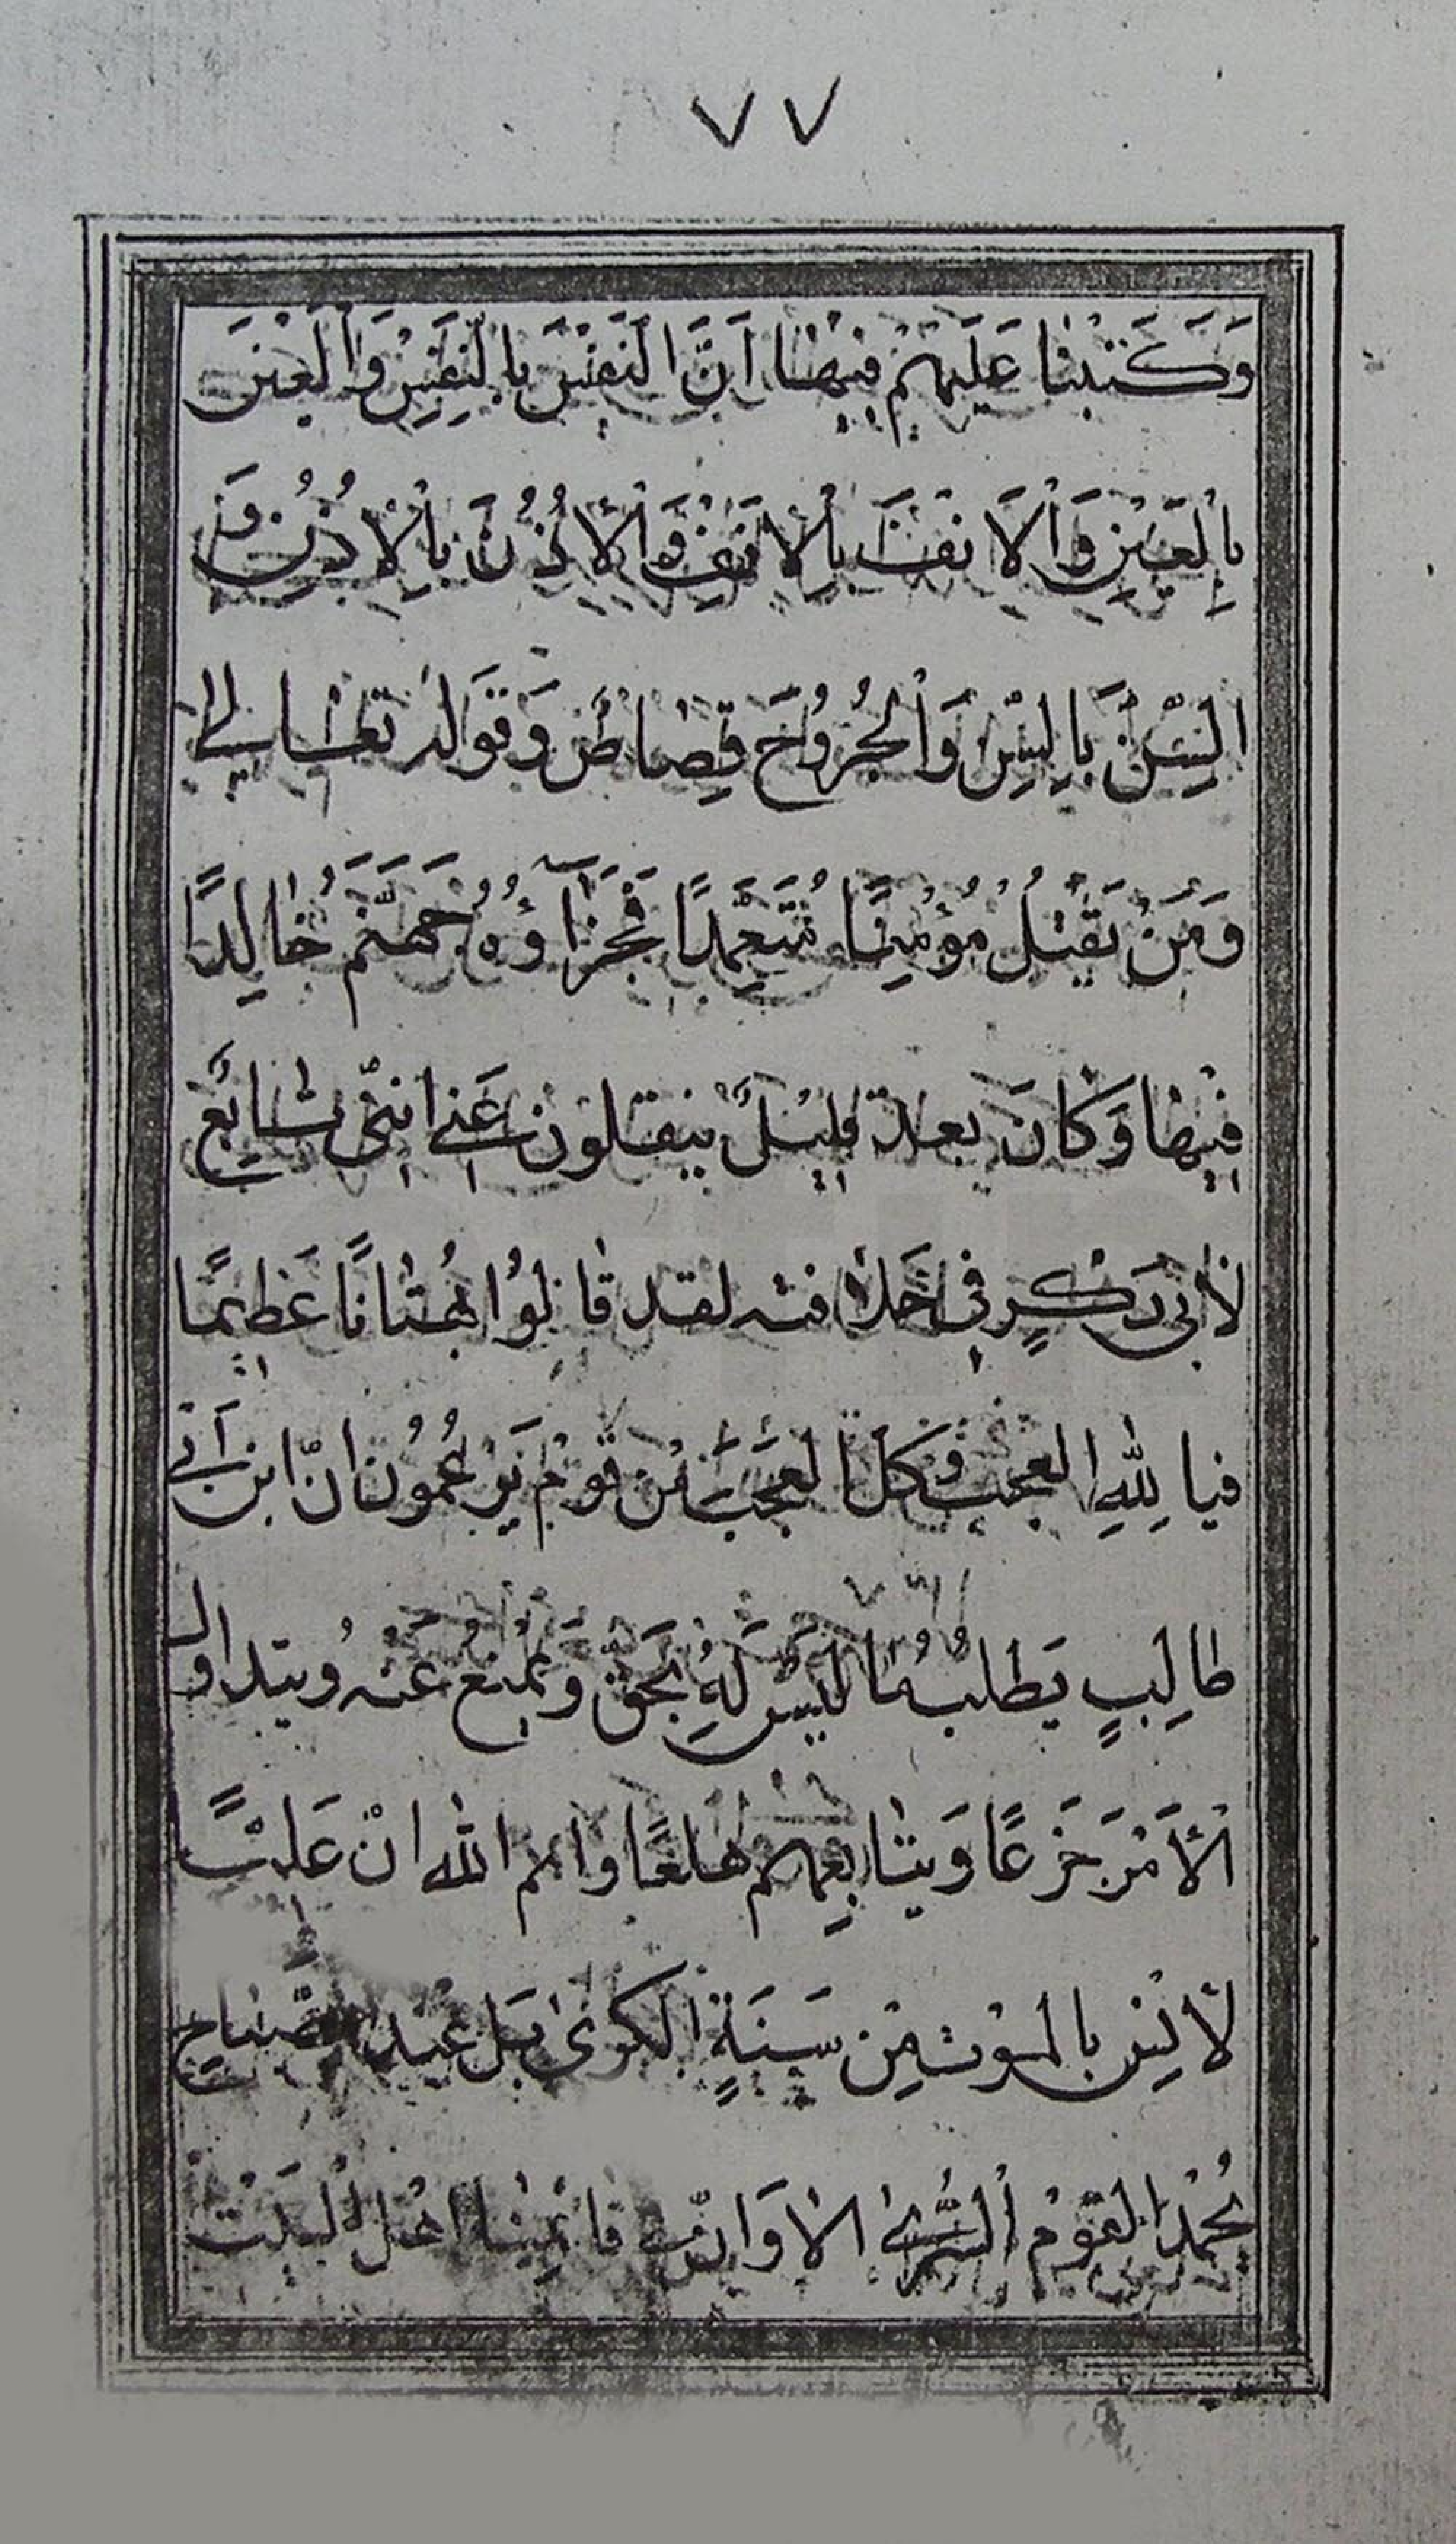 ٧٧
وَكَتَبْنا عَلَيْهِمْ فِيْهٰا اَنَّ النَفْسَ بِا لنَفْسِ وَالْعَيْنَ
بِاْلعَيْنِ وَاْلاَ نفَ بِاْلا نْفِ وَاْلاُذُنَ بِاْلاُذُنِ وَ
السِّنَّ بِا لسِّنِّ وَاْلجُرُوْحَ قِصٰاصٌ وَقَوَلْهُ تعٰالى
وَمَنْ يَقْتُلْ مُؤْمِنًا مُتَعِمَّدًا فَجَزَآؤُهُ جَهَنَّمَ خٰالِدًا
فِيْهٰا وَكاٰنَ بعد قَلِيْلٌ ينقلون عَنى انى تٰابِعٌ
لأبى بَكْرٍ فى خَلاٰفته لقد قٰالُوْا بُهْتٰانًا عَظِيْمًا
فيا لِلّٰهِ العجب وَكلّ العَجَبَ مْن قَوْم يَزْعُمُون انّ ابن اَبى
طٰالِبٍ يَطلبُ مٰا لَيْسَ لَهُ بحَقّ وَيمْنع عَنْه ويتداول
الْأمْرَ جَزَعًا وَيتٰابِعهم هلعًا وايم الله انّ عَليًّا
لأٰنس بالموْت مِنْ سِنَةِ الكرىٰ بَل عِنْد الصَّبٰاحِ
يُحْمدُ القوْم السُّرىٰ الاٰ وَانّى قٰائمنا اهْل البَيْت